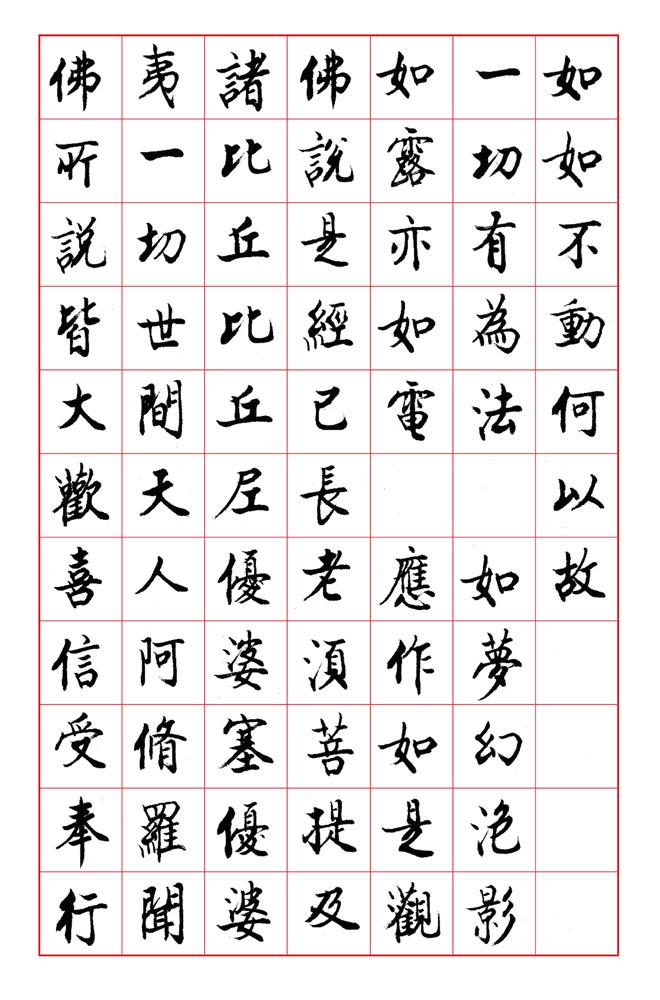 如如不動何以故
一切有為法 如夢幻泡影
如露亦如電 應作如是觀
佛說是經已長老須菩提及
諸比丘比丘尼優婆塞優婆
夷一切世間天人阿脩羅聞
佛所說皆大歡喜信受奉行